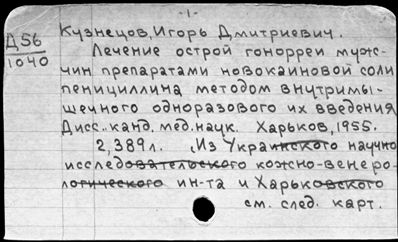 -1-
Д56
1040
Кузнецов, Игорь Дмитриевич.
Лечение острой гонорреи муж-
чин препаратами новокаиновой соли
пенициллина методом внутримы-
шечного одноразового их введения
Дисс. канд. мед. наук. Харьков, 1955.
2,389л. Из Украинского научно
исследовательского кожно-венеро-
логического ин-та и Харьковского
см. след. карт.